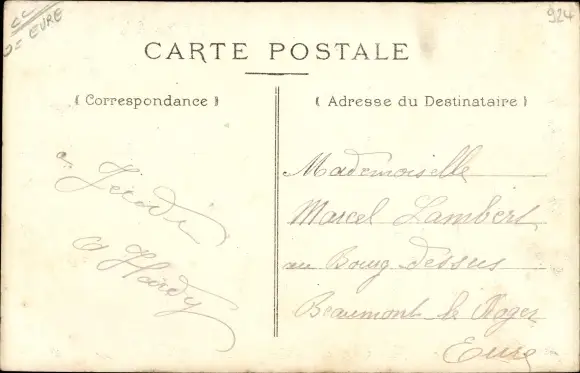 EURE
924
CARTE POSTALE
( Correspondance )
( Adresse du Destinataire )
Hardy
Mademoiselle
Marcel Lambert
au Bourg dessus
Beaumont le Roger
Eure